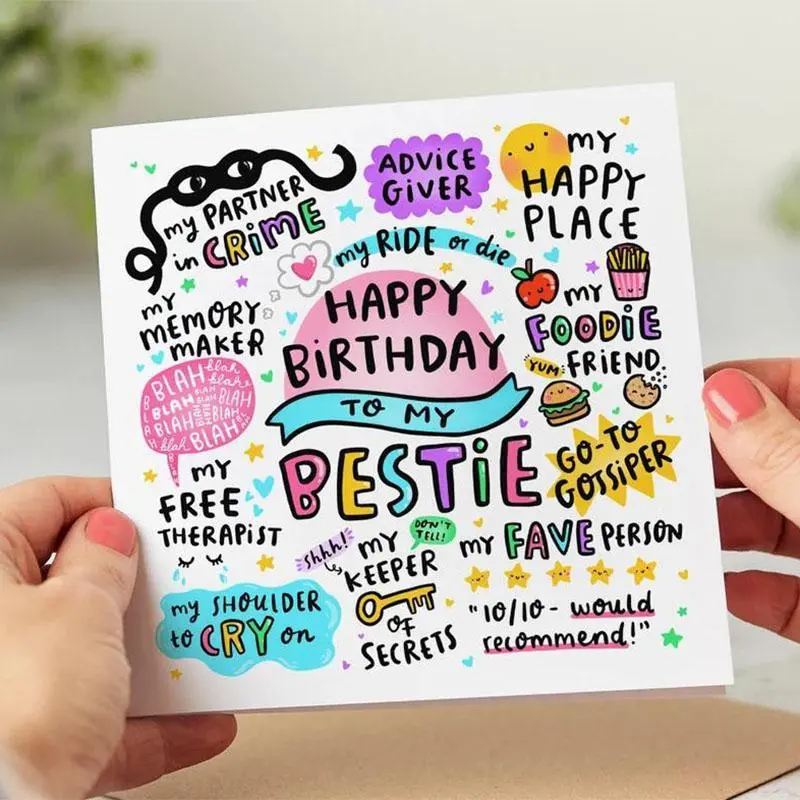 my PARTNER
in CRIME
ADVICE
GIVER
my
HAPPY
PLACE
my RIDE or die
my
MEMORY
MAKER
HAPPY
BIRTHDAY
TO MY
BESTIE
my
FOODIE
FRIEND
YUM
BLAH blah
blah
BLAH
BLAH
BLAH
BLAH
BLAH
blah
BLAH
my
FREE
THERAPIST
GO-TO
GOSSIPER
shhh!
DON'T
TELL!
my
KEEPER
OF
SECRETS
my FAVE PERSON
"10/10 - would
recommend!"
my SHOULDER
to CRY on